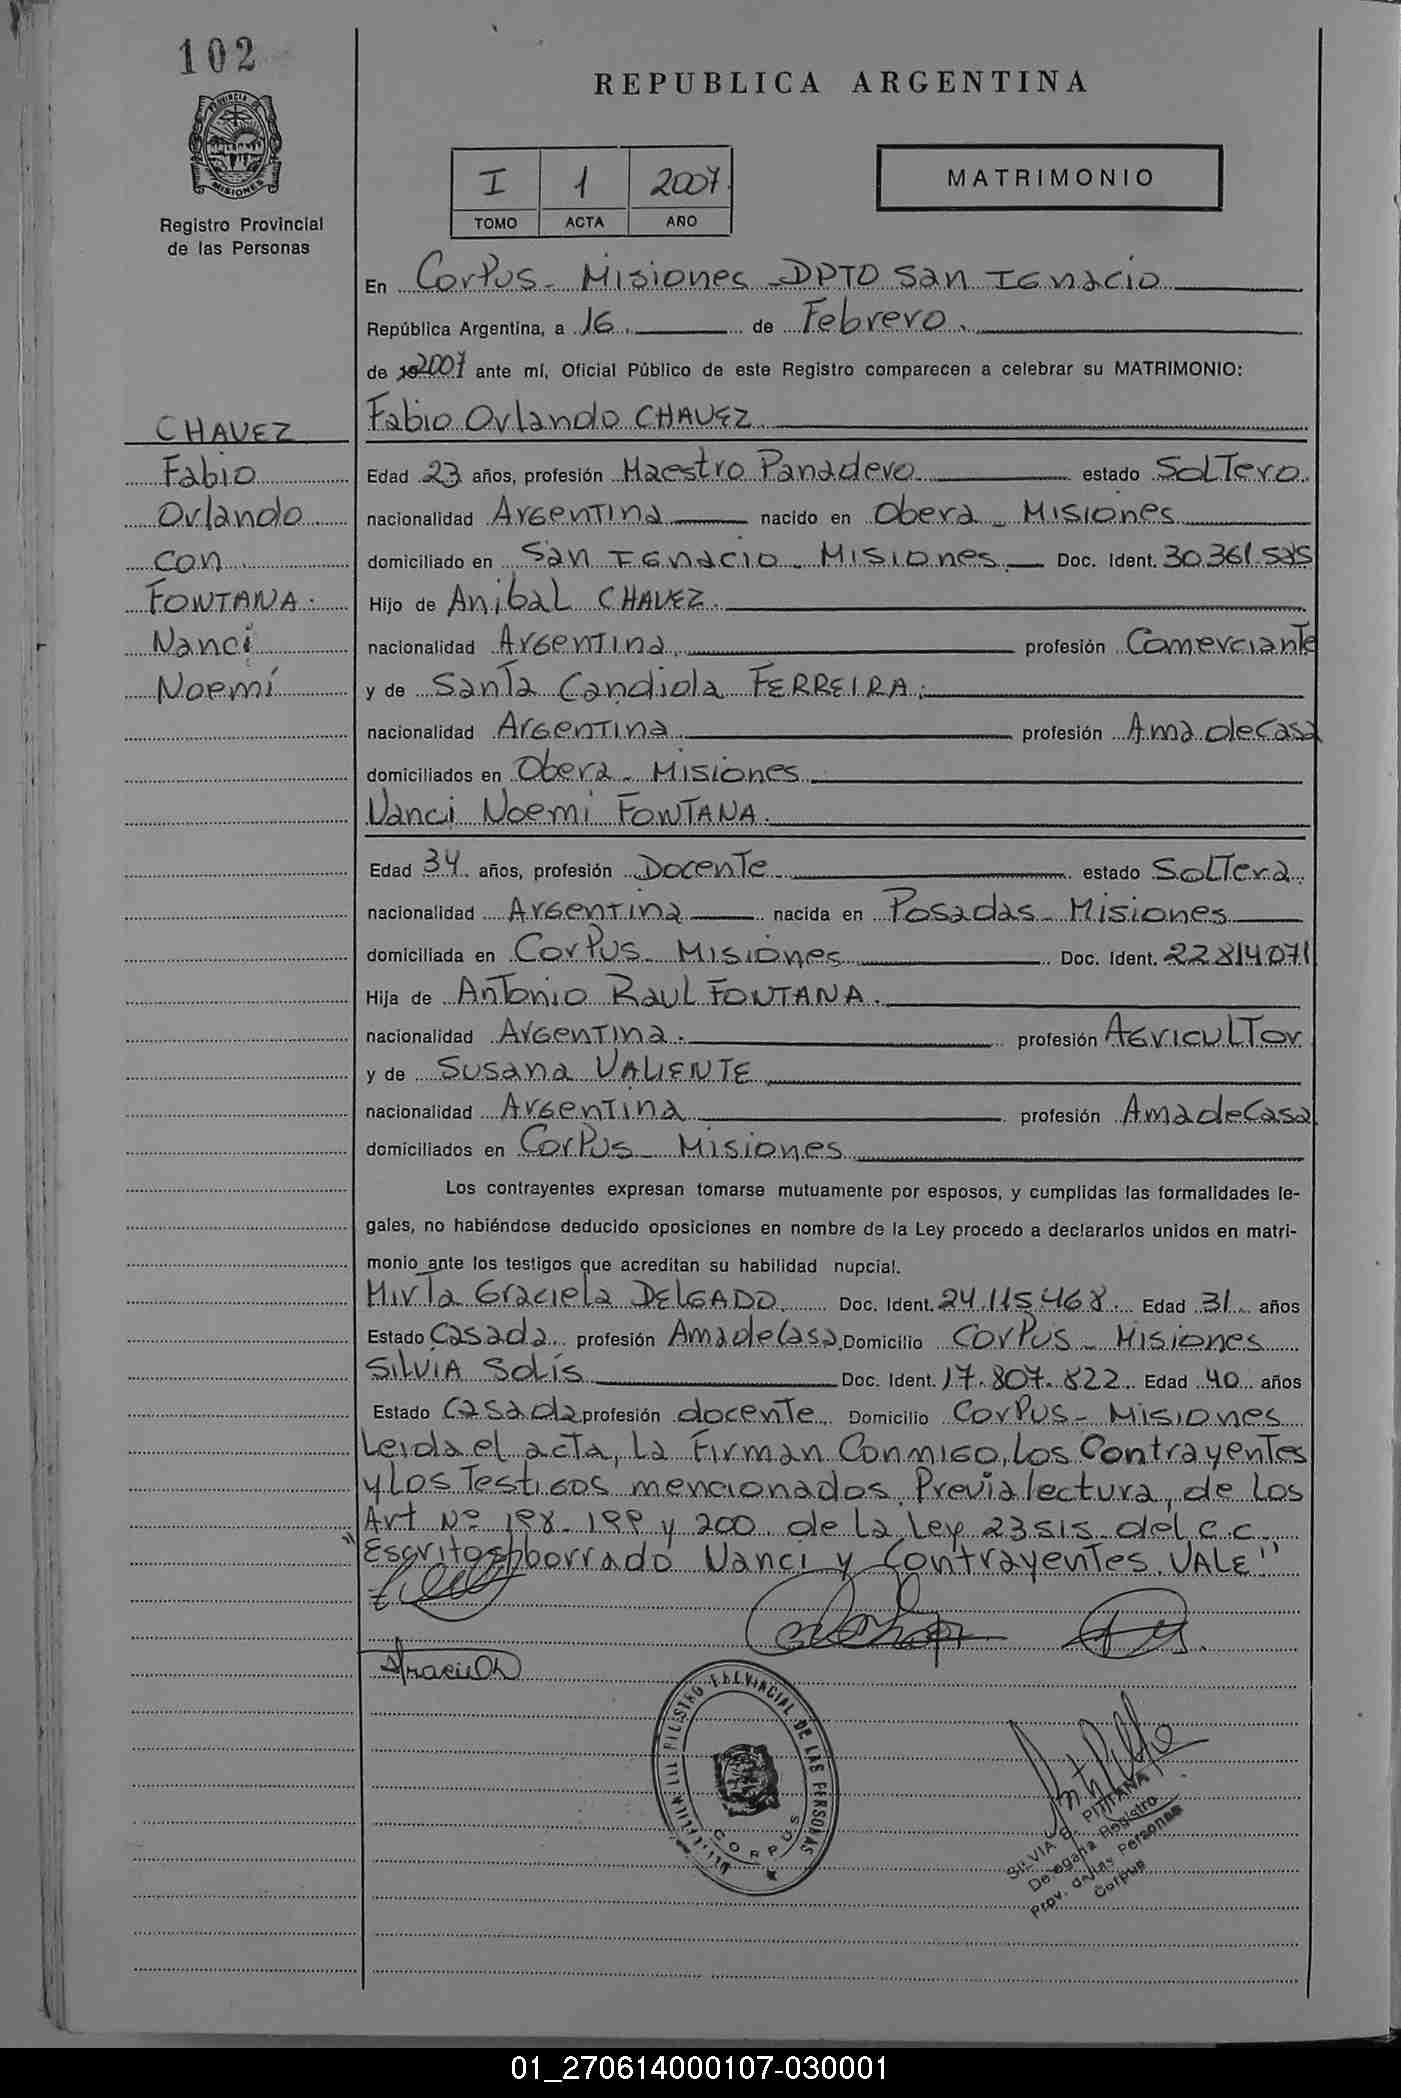 102
REPUBLICA ARGENTINA
PROVINCIA DE
MISIONES
Registro Provincial
de las Personas
I 1 2007
TOMO ACTA AÑO
MATRIMONIO
En Corpus - Misiones - DPTO San Ignacio
República Argentina, a 16 de Febrero
de 2007 ante mí, Oficial Público de este Registro comparecen a celebrar su MATRIMONIO:
Fabio Orlando CHAVEZ
CHAVEZ
Fabio
Orlando
con
FONTANA
Nanci
Noemí
Edad 23 años, profesión Maestro Panadero estado Soltero
nacionalidad Argentina nacido en Obera - Misiones
domiciliado en San Ignacio - Misiones Doc. Ident. 30361.525
Hijo de Anibal CHAVEZ
nacionalidad Argentina profesión Comerciante
y de Santa Candida FERREIRA
nacionalidad Argentina profesión Ama de Casa
domiciliados en Obera - Misiones
Nanci Noemi FONTANA
Edad 34 años, profesión Docente estado Soltera
nacionalidad Argentina nacida en Posadas - Misiones
domiciliada en Corpus - Misiones Doc. Ident. 22814071
Hija de Antonio Raul FONTANA.
nacionalidad Argentina. profesión Agricultor
y de Susana VALIENTE
nacionalidad Argentina profesión Ama de Casa
domiciliados en Corpus - Misiones
Los contrayentes expresan tomarse mutuamente por esposos, y cumplidas las formalidades le-
gales, no habiéndose deducido oposiciones en nombre de la Ley procedo a declararlos unidos en matri-
monio ante los testigos que acreditan su habilidad nupcial.
Mirta Graciela DELGADO Doc. Ident. 24.115.468. Edad 31 años
Estado Casada profesión Ama de Casa Domicilio Corpus - Misiones
SILVIA SOLÍS Doc. Ident. 17.807.822 Edad 40 años
Estado Casada profesión docente Domicilio Corpus - Misiones
Leida el acta, la firman conmigo, los Contrayentes
y los Testigos mencionados, Previa lectura, de los
Art Nº 198 - 199 y 200 de la Ley 23515 del C.C.
"Escritos/borrado Nanci y Contrayentes. VALE"
REGISTRO PROVINCIAL DE LAS PERSONAS
CORPUS
SILVIA B. PITTANA
Delegada Registro
Prov. de las Personas
Corpus
01_270614000107-030001